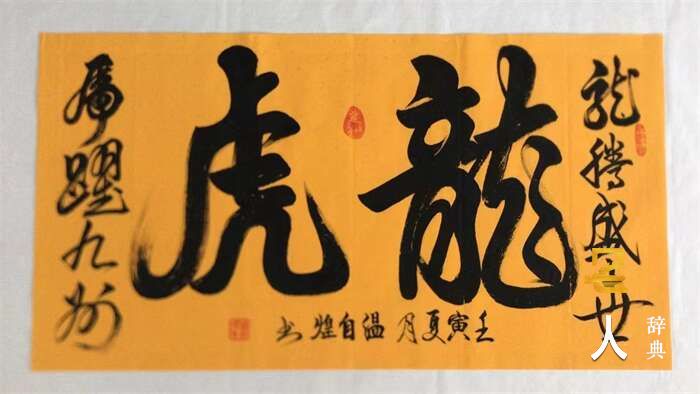 龍騰盛世
龍虎
虎躍九州
壬寅夏月 温自煌书
名人
辞典